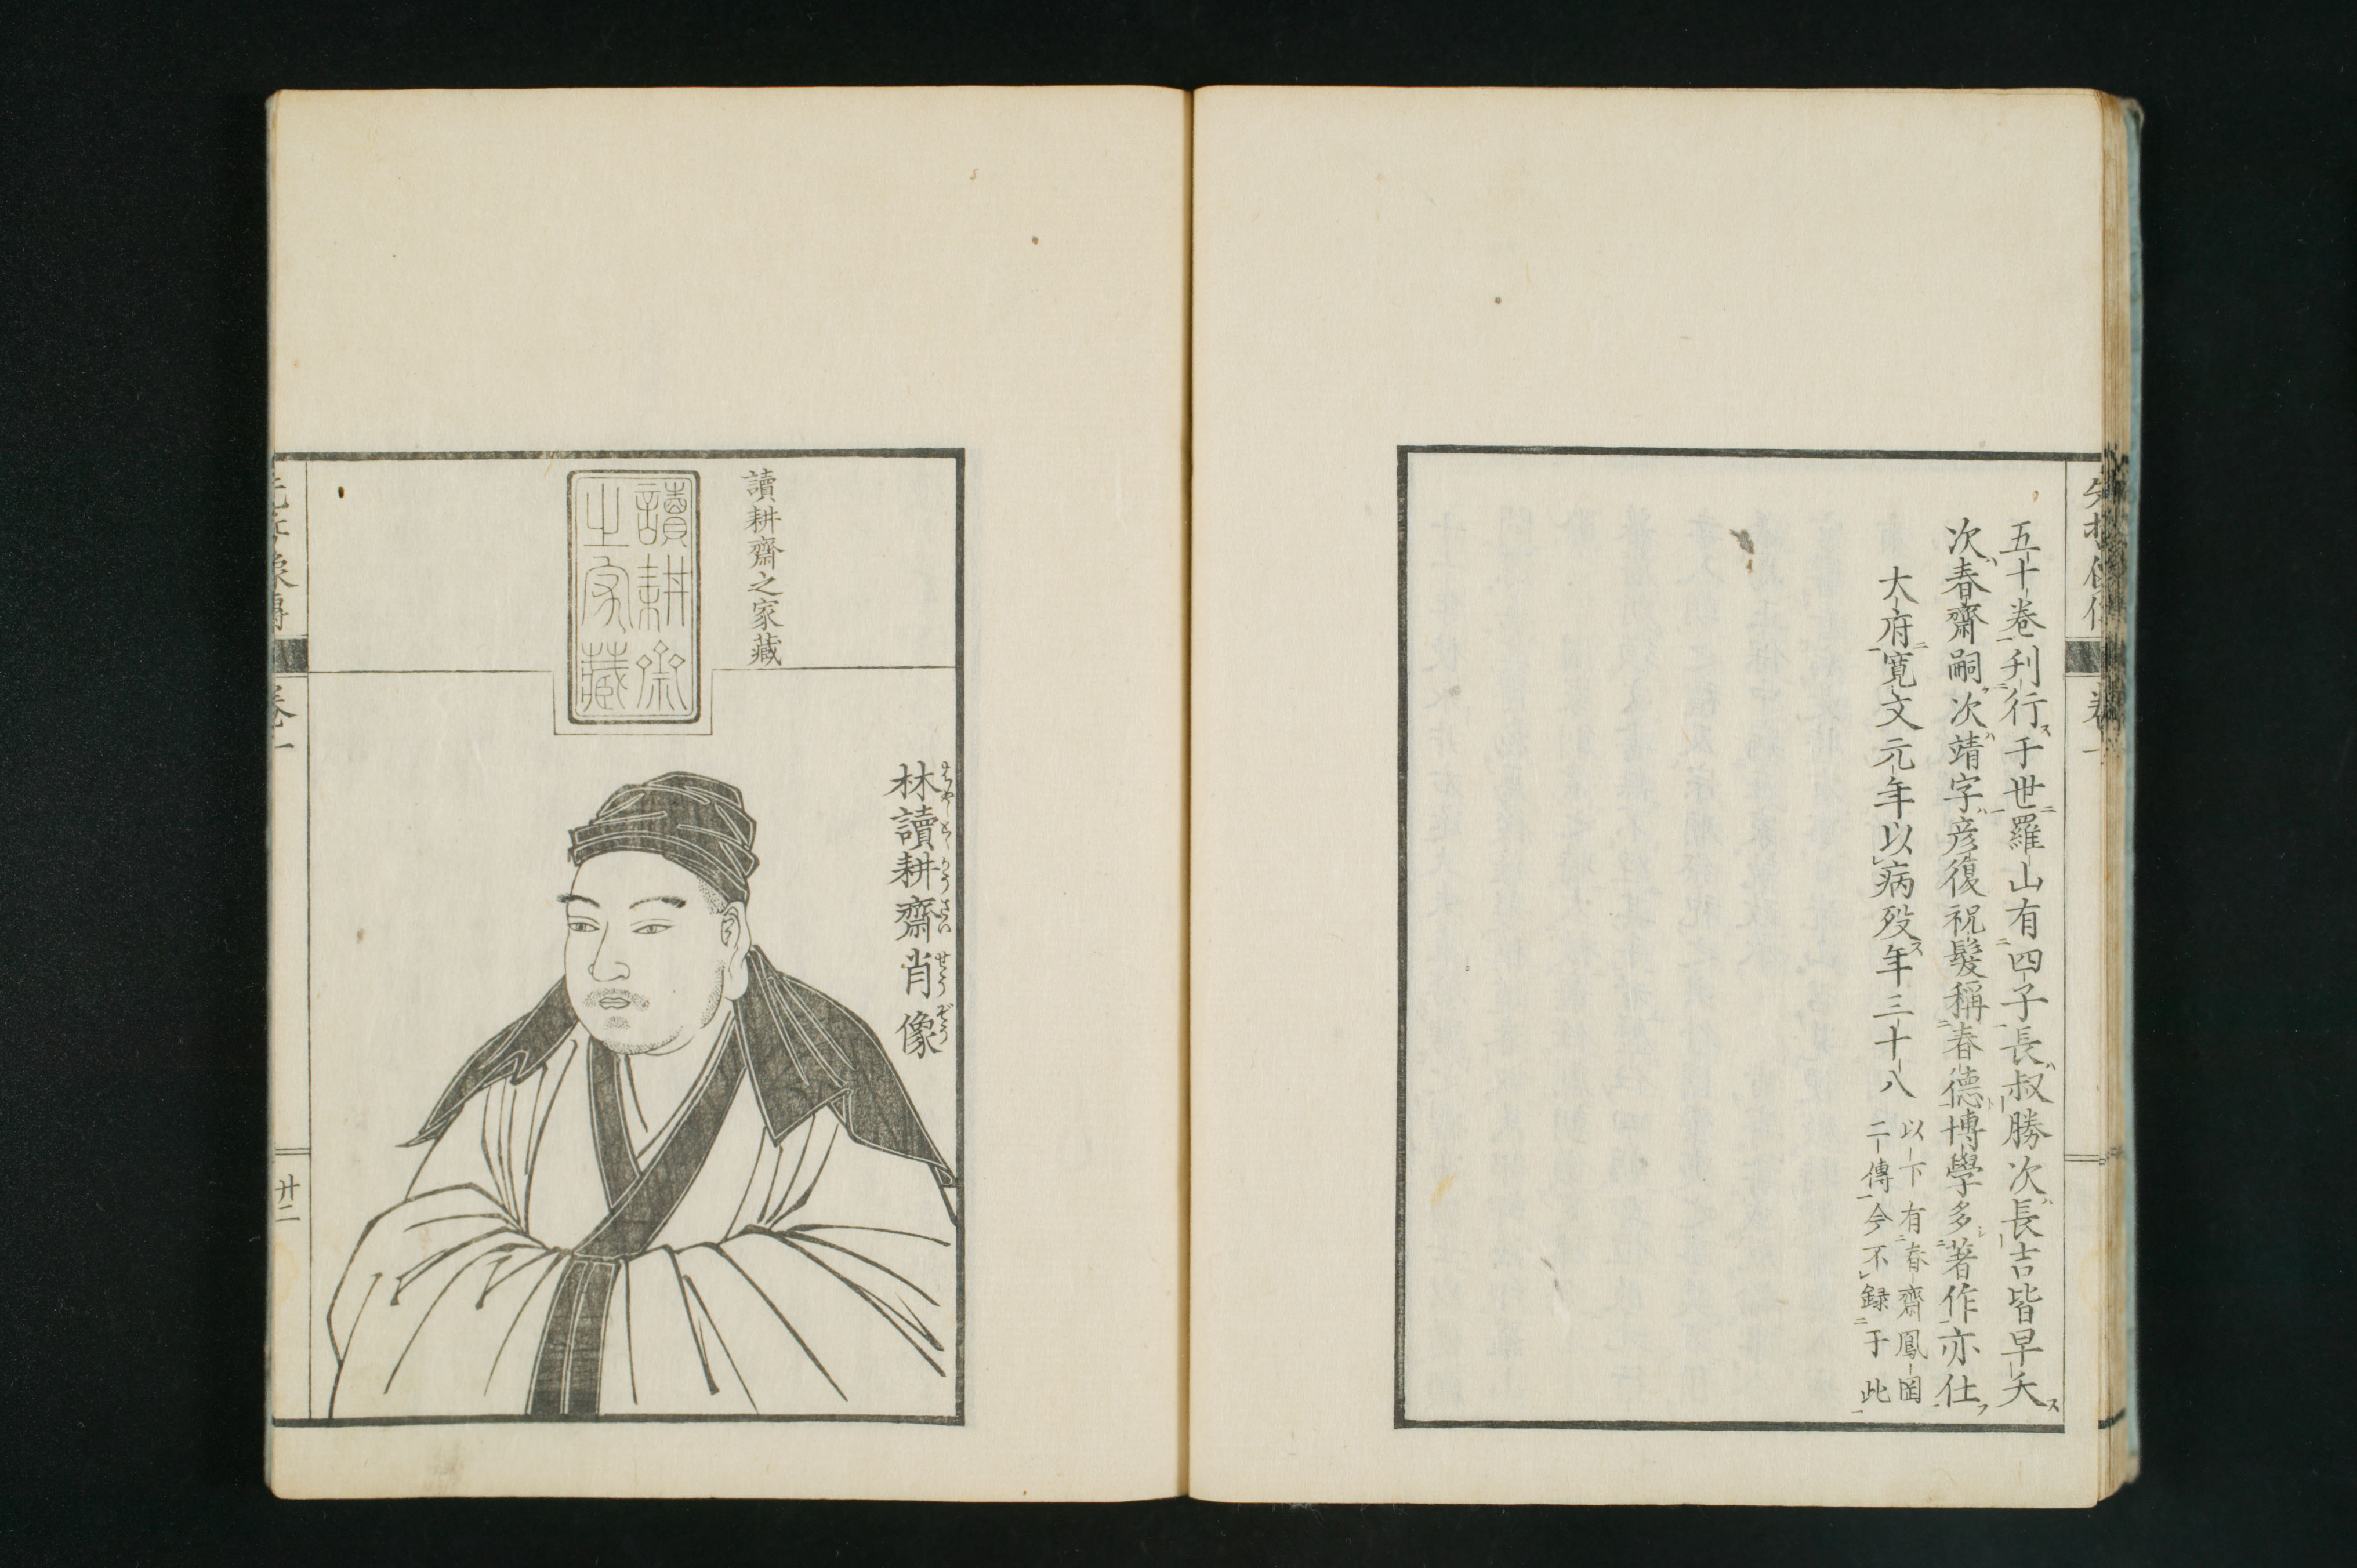 五十卷刋行于世羅山有四子長叔勝次長吉皆早夭
次春齋嗣次靖字彦復祝髮稱春德博學多著作亦仕
大府寛文元年以病歿年三十八
以下有春齋鳳岡
二傳今不録于此
讀耕齋之家藏
讀耕齋
之家藏
林讀耕齋肖像
はやしどくかうさいせうぞう
先哲像傳 卷一 廿二